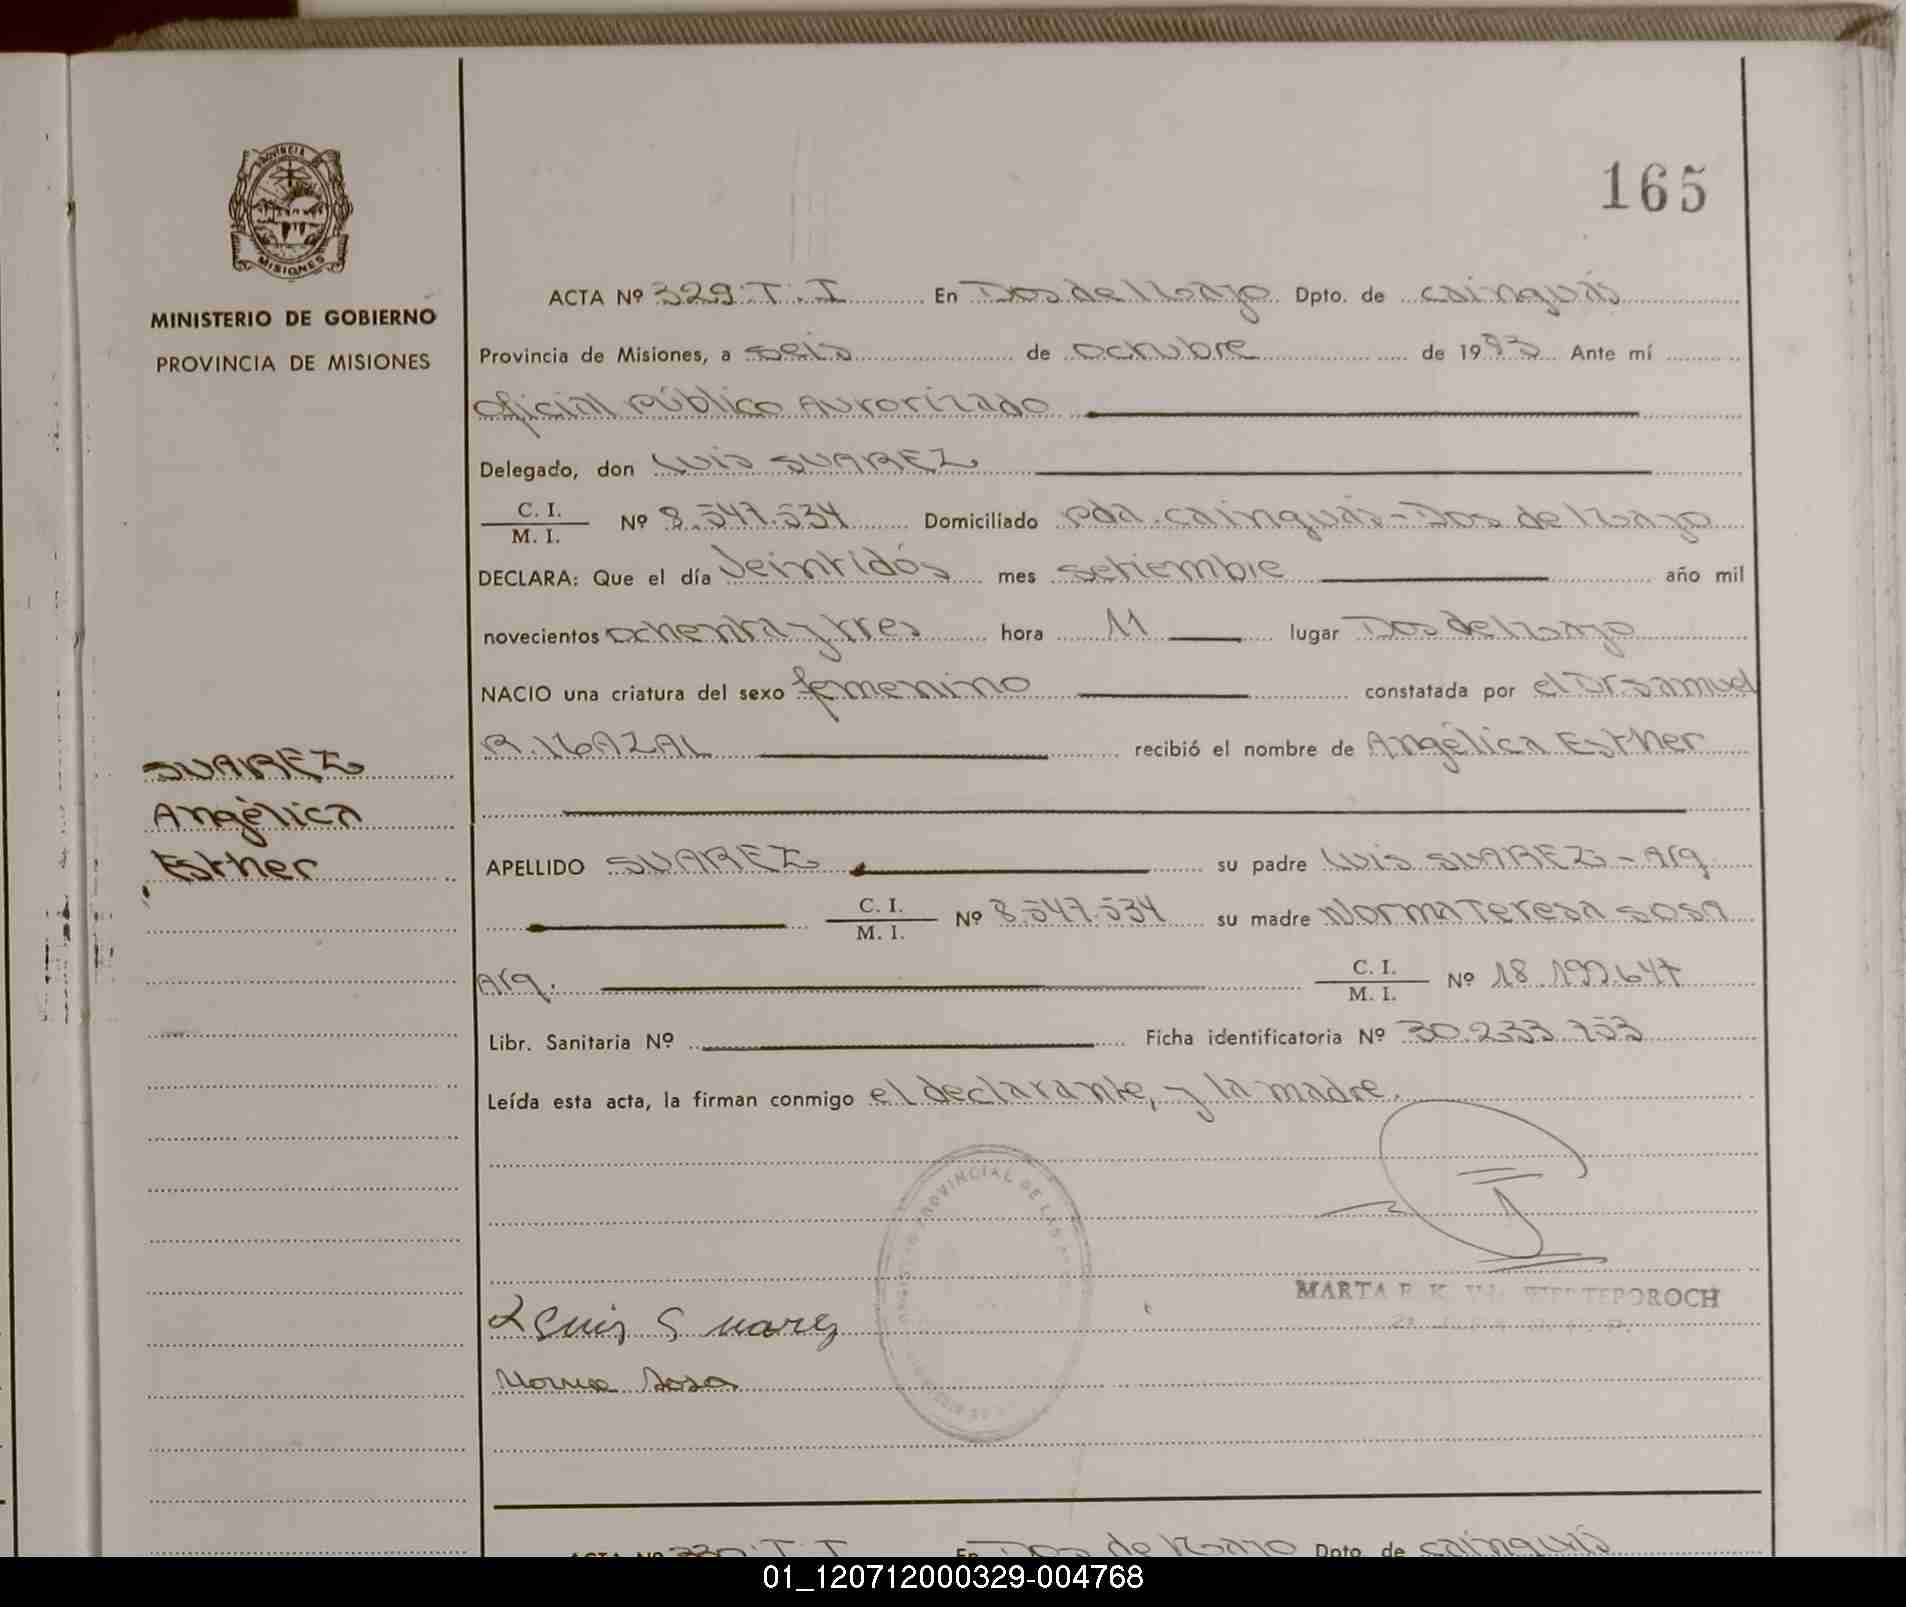 165
PROVINCIA
MISIONES
MINISTERIO DE GOBIERNO
PROVINCIA DE MISIONES
ACTA Nº 329 T. I En Dos de Mayo Dpto. de cainguás
Provincia de Misiones, a seis de octubre de 1983 Ante mí
oficial Público Autorizado
Delegado, don Luis SUAREZ
C. I.
M. I. Nº 8.547.534 Domiciliado Pda. cainguás - Dos de Mayo
DECLARA: Que el día veintidós mes setiembre año mil
novecientos ochenta y tres hora 11 lugar Dos de Mayo
NACIO una criatura del sexo femenino constatada por el Dr. Samuel
R. recibió el nombre de Angélica Esther
SUAREZ
Angélica
Esther
APELLIDO SUAREZ su padre Luis SUAREZ - Arg.
C. I.
M. I. Nº 8.547.534 su madre Norma Teresa SOSA
Arg. C. I.
M. I. Nº 18.199.647
Libr. Sanitaria Nº Ficha identificatoria Nº 30.233.753
Leída esta acta, la firman conmigo el declarante, y la madre.
PROVINCIAL DE LAS
MARTA
Luis Suarez
Norma Sosa
ACTA Nº 330 T. I En Dos de Mayo Dpto. de cainguás
01_120712000329-004768